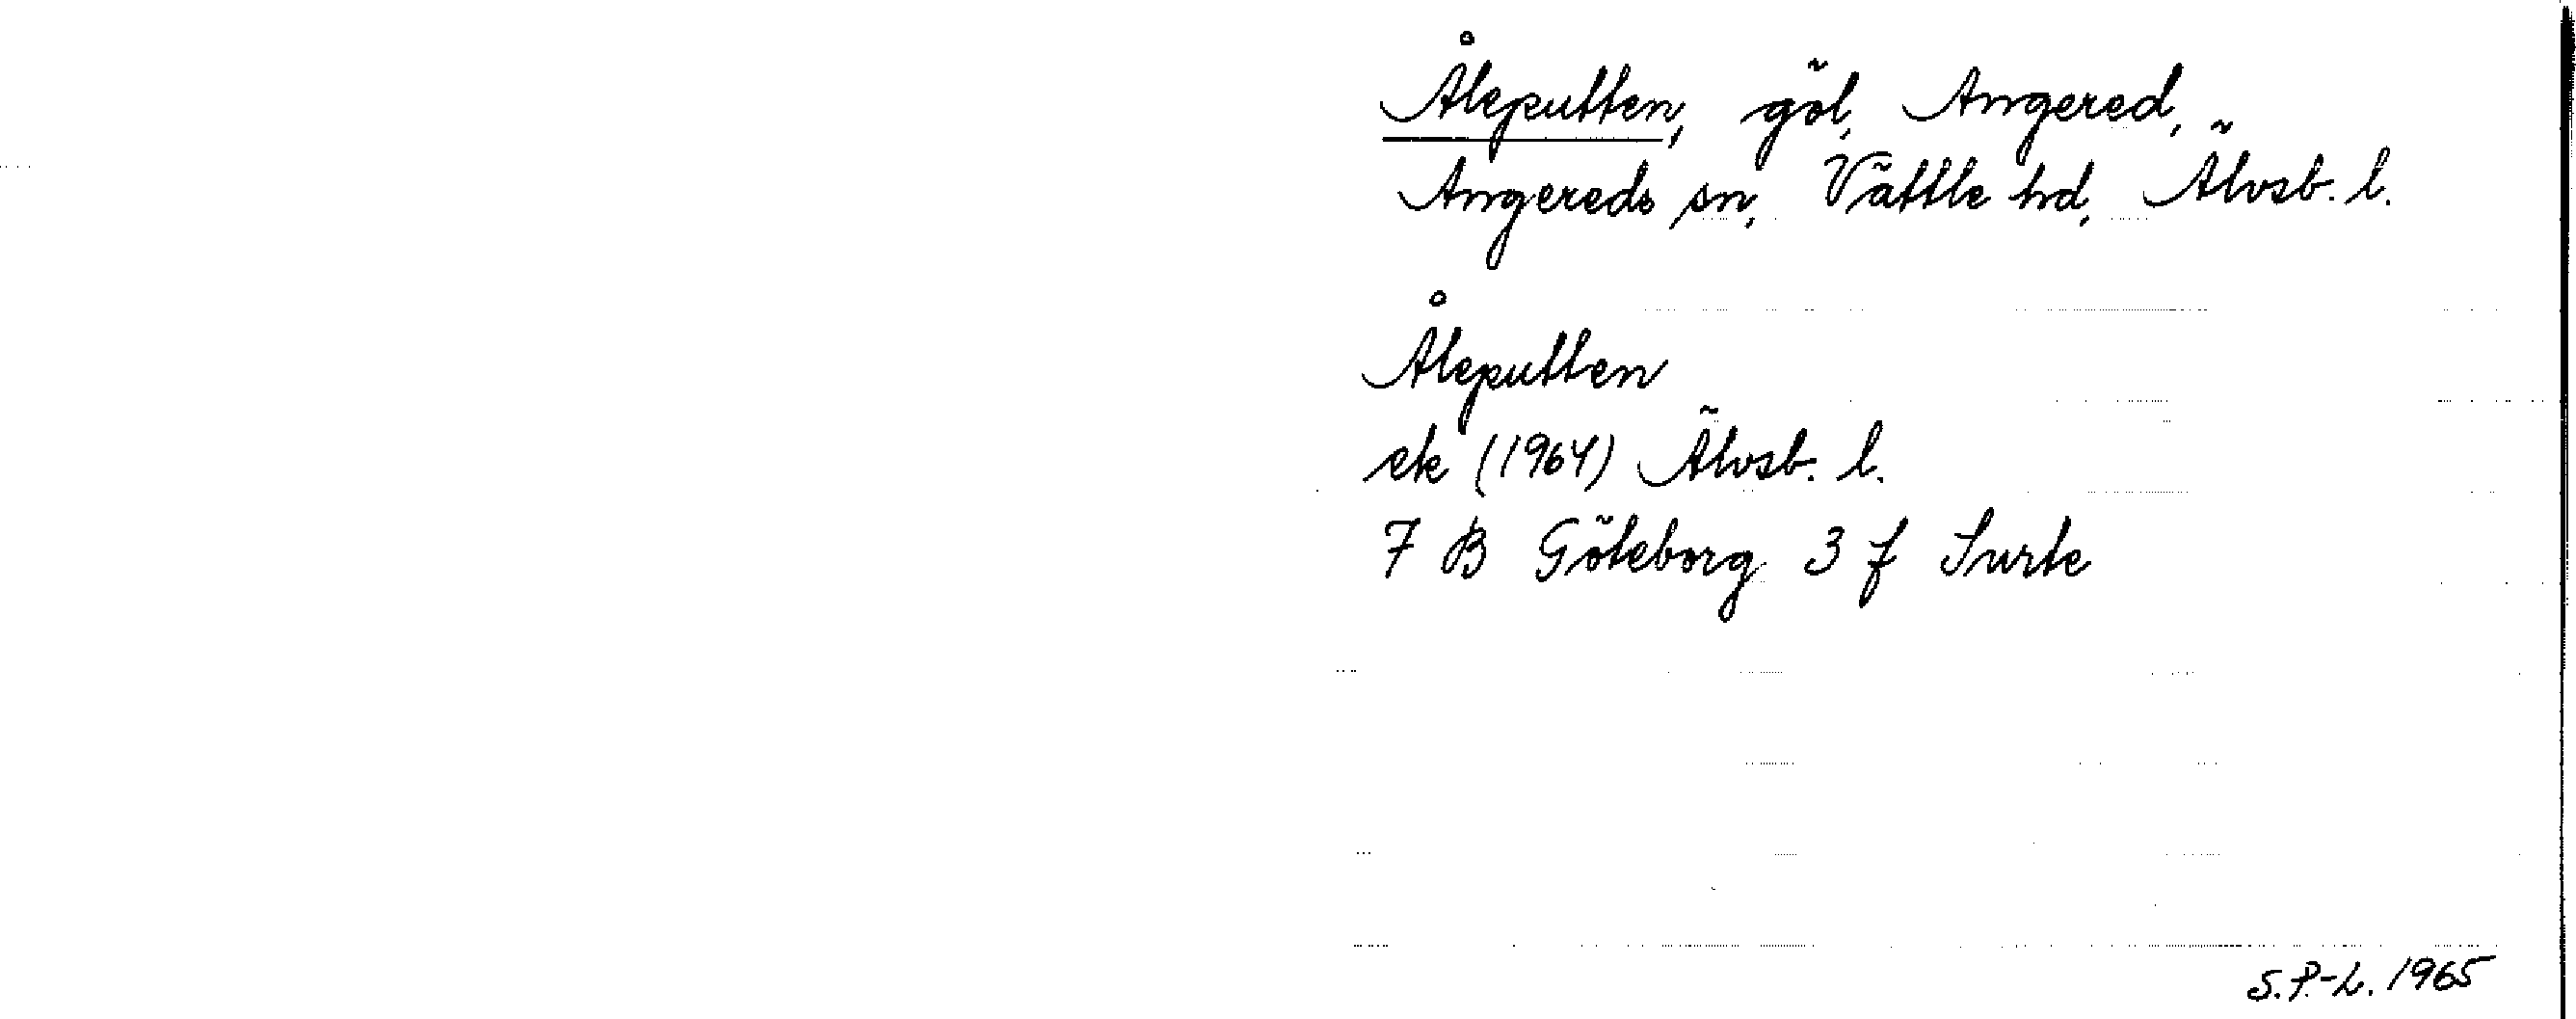 Åleputten, göl, Angered,
Angereds sn, Vättle hd, Älvsb. l.
Åleputten
ek (1964) Älvsb. l.
7 B Göteborg 3 f Surte
S.P.-L. 1965